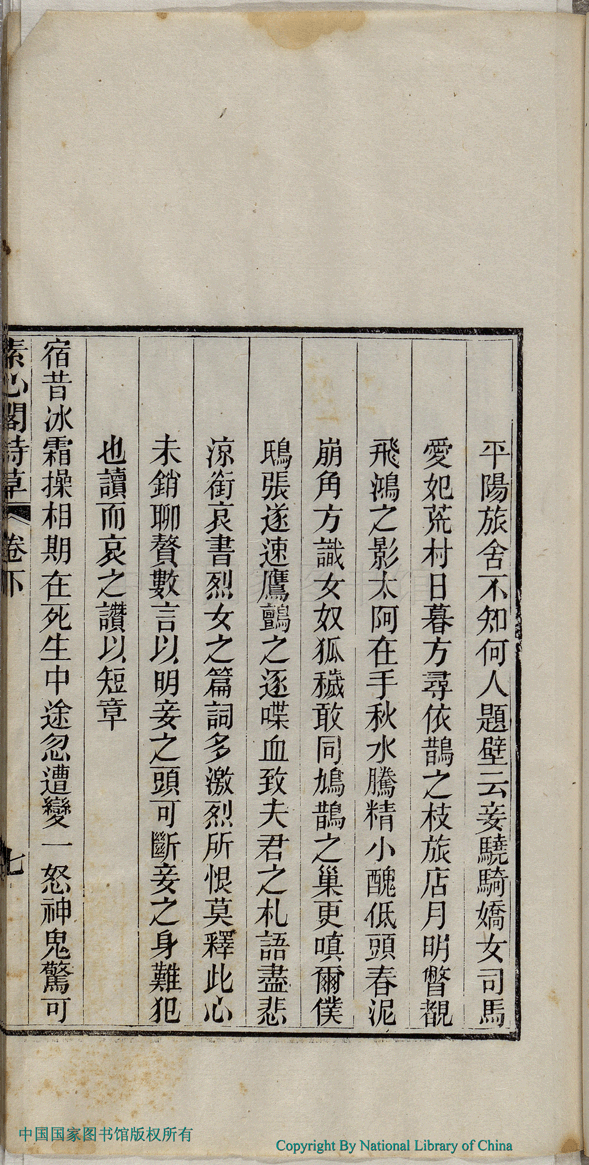 平陽旅舍不知何人題壁云妾驍騎嬌女司馬
愛妃荒村日暮方尋依鵲之枝旅店月明瞥覩
飛鴻之影太阿在手秋水騰精小醜低頭春泥
崩角方識女奴狐穢敢同鳩鵲之巢更嗔爾僕
鴟張遂速鷹鸇之逐喋血致夫君之札語盡悲
涼銜哀書烈女之篇詞多激烈所恨莫釋此心
未銷聊贅數言以明妾之頭可斷妾之身難犯
也讀而哀之讚以短章
宿昔冰霜操相期在死生中途忽遭變一怒神鬼驚可
素心閣詩草 卷下 七
中国国家图书馆版权所有
Copyright By National Library of China